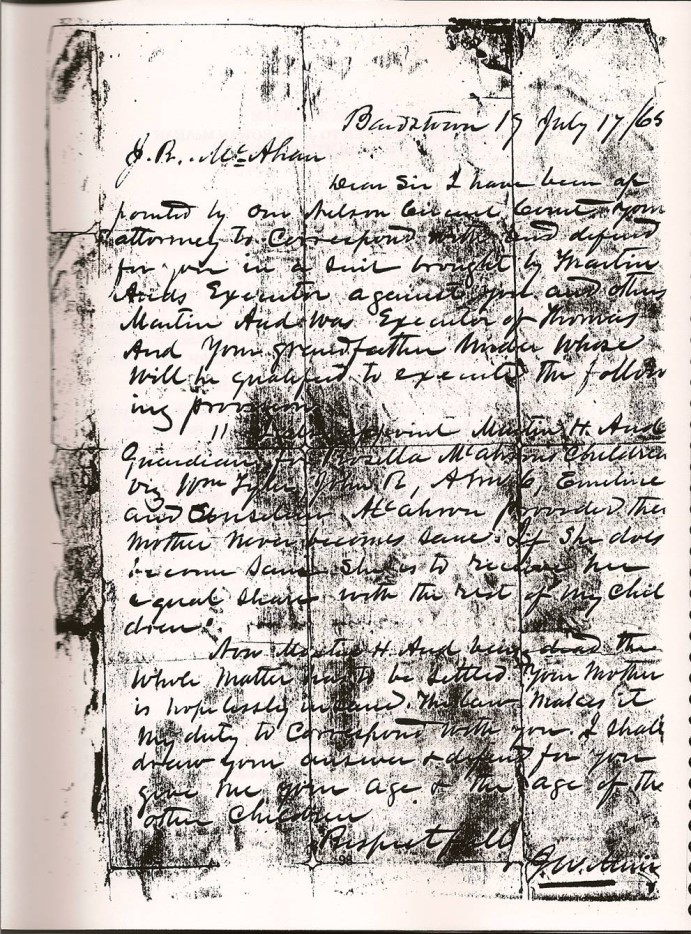 Bardstown Ky July 17/65
J. R. McAhan
Dear Sir I have been ap
pointed by our Nelson Circuit Court your
attorney to Correspond with and defend
for you in a suit brought by Martin
Auds Executor against you and others
Martin Aud was Executor of Thomas
Aud Your grandfather Under Whose
Will he qualified to execute the follow
ing provisions
appoint Martin H. Aud
Guardian for Rosella McAhrons Children
viz Wm Tyler, John R, Emeline
and McAhron provided their
Mother Never becomes Sane. If She does
become Sane She is to receive her
equal Share with the rest of my Chil
dren"
Now Martin H. Aud being dead the
Whole Matter has to be Settled. Your Mother
is hopelessly insane. The law Makes it
My duty to Correspond with you. I shall
draw your answer & defend for you
give me your age & the age of the
other Children
Respectfully
J. W.
98